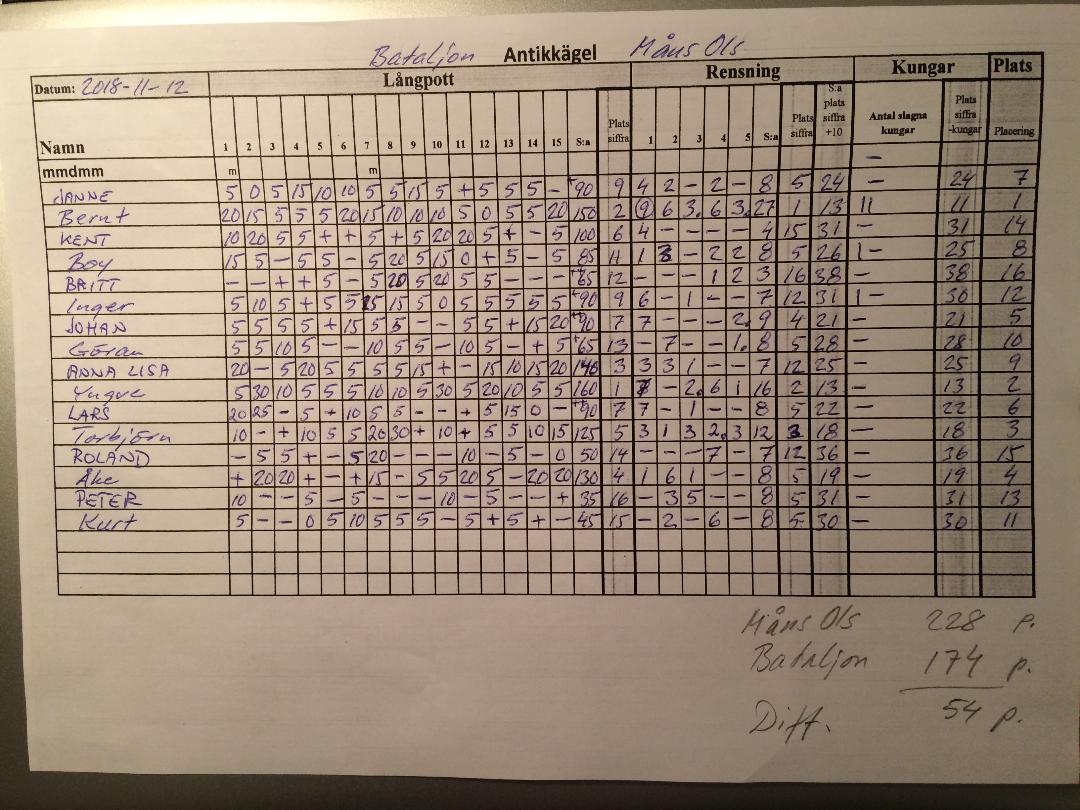 Bataljon Antikkägel Måns Ols
Datum: 2018-11-12 Långpott Rensning Kungar Plats
Namn 1 2 3 4 5 6 7 8 9 10 11 12 13 14 15 S:a Plats siffra 1 2 3 4 5 S:a Plats siffra S:a plats siffra +10 Antal slagna kungar Plats siffra -kungar Placering
mmdmm m m –
JANNE 5 0 5 15 10 10 5 5 15 5 + 5 5 5 – +90 9 4 2 – 2 – 8 5 24 – 24 7
Bernt 20 15 5 5 5 20 15 10 10 10 5 0 5 5 20 150 2 (9) 6 3. 6 3. 27 1 13 11 11 1
KENT 10 20 5 5 + + 5 + 5 20 20 5 + – 5 100 6 4 – – – – 4 15 31 – 31 14
Boy 15 5 – 5 5 – 5 20 5 15 0 + 5 – 5 85 11 1 3 – 2 2 8 5 26 1 – 25 8
BRITT – – + + 5 – 5 20 5 20 5 5 – – – 65 12 – – – 1 2 3 16 38 – 38 16
Inger 5 10 5 + 5 5 15 5 0 5 5 5 5 5 +90 9 6 – 1 – – 7 12 31 1 – 30 12
JOHAN 5 5 5 5 + 15 5 5 – – 5 5 + 15 20 90 7 7 – – – 2. 9 4 21 – 21 5
Göran 5 5 10 5 – – 10 5 5 – 10 5 – + 5 +65 13 – 7 – – 1. 8 5 28 – 28 10
ANNA LISA 20 – 5 20 5 5 5 5 15 + – 15 10 15 20 140 3 3 3 1 – – 7 12 25 – 25 9
Yngve 5 30 10 5 5 5 10 10 5 30 5 20 10 5 5 160 1 7 – 2. 6 1 16 2 13 – 13 2
LARS 20 25 – 5 + 10 5 5 – – + 5 15 0 – 90 7 7 – 1 – – 8 5 22 – 22 6
Torbjörn 10 – + 10 5 5 20 30 + 10 + 5 5 10 15 125 5 3 1 3 2. 3 12 3 18 – 18 3
ROLAND – 5 5 + – 5 20 – – – 10 – 5 – 0 50 14 – – – 7 – 7 12 36 – 36 15
Åke + 20 20 + – + 15 – 5 5 20 5 – 20 20 130 4 1 6 1 – – 8 5 19 – 19 4
PETER 10 – – 5 – 5 – – – 10 – 5 – – + 35 16 – 3 5 – – 8 5 31 – 31 13
Kurt 5 – – 0 5 10 5 5 5 – 5 + 5 + – 45 15 – 2 – 6 – 8 5 30 – 30 11
Måns Ols 228 p.
Bataljon 174 p.
Diff. 54 p.